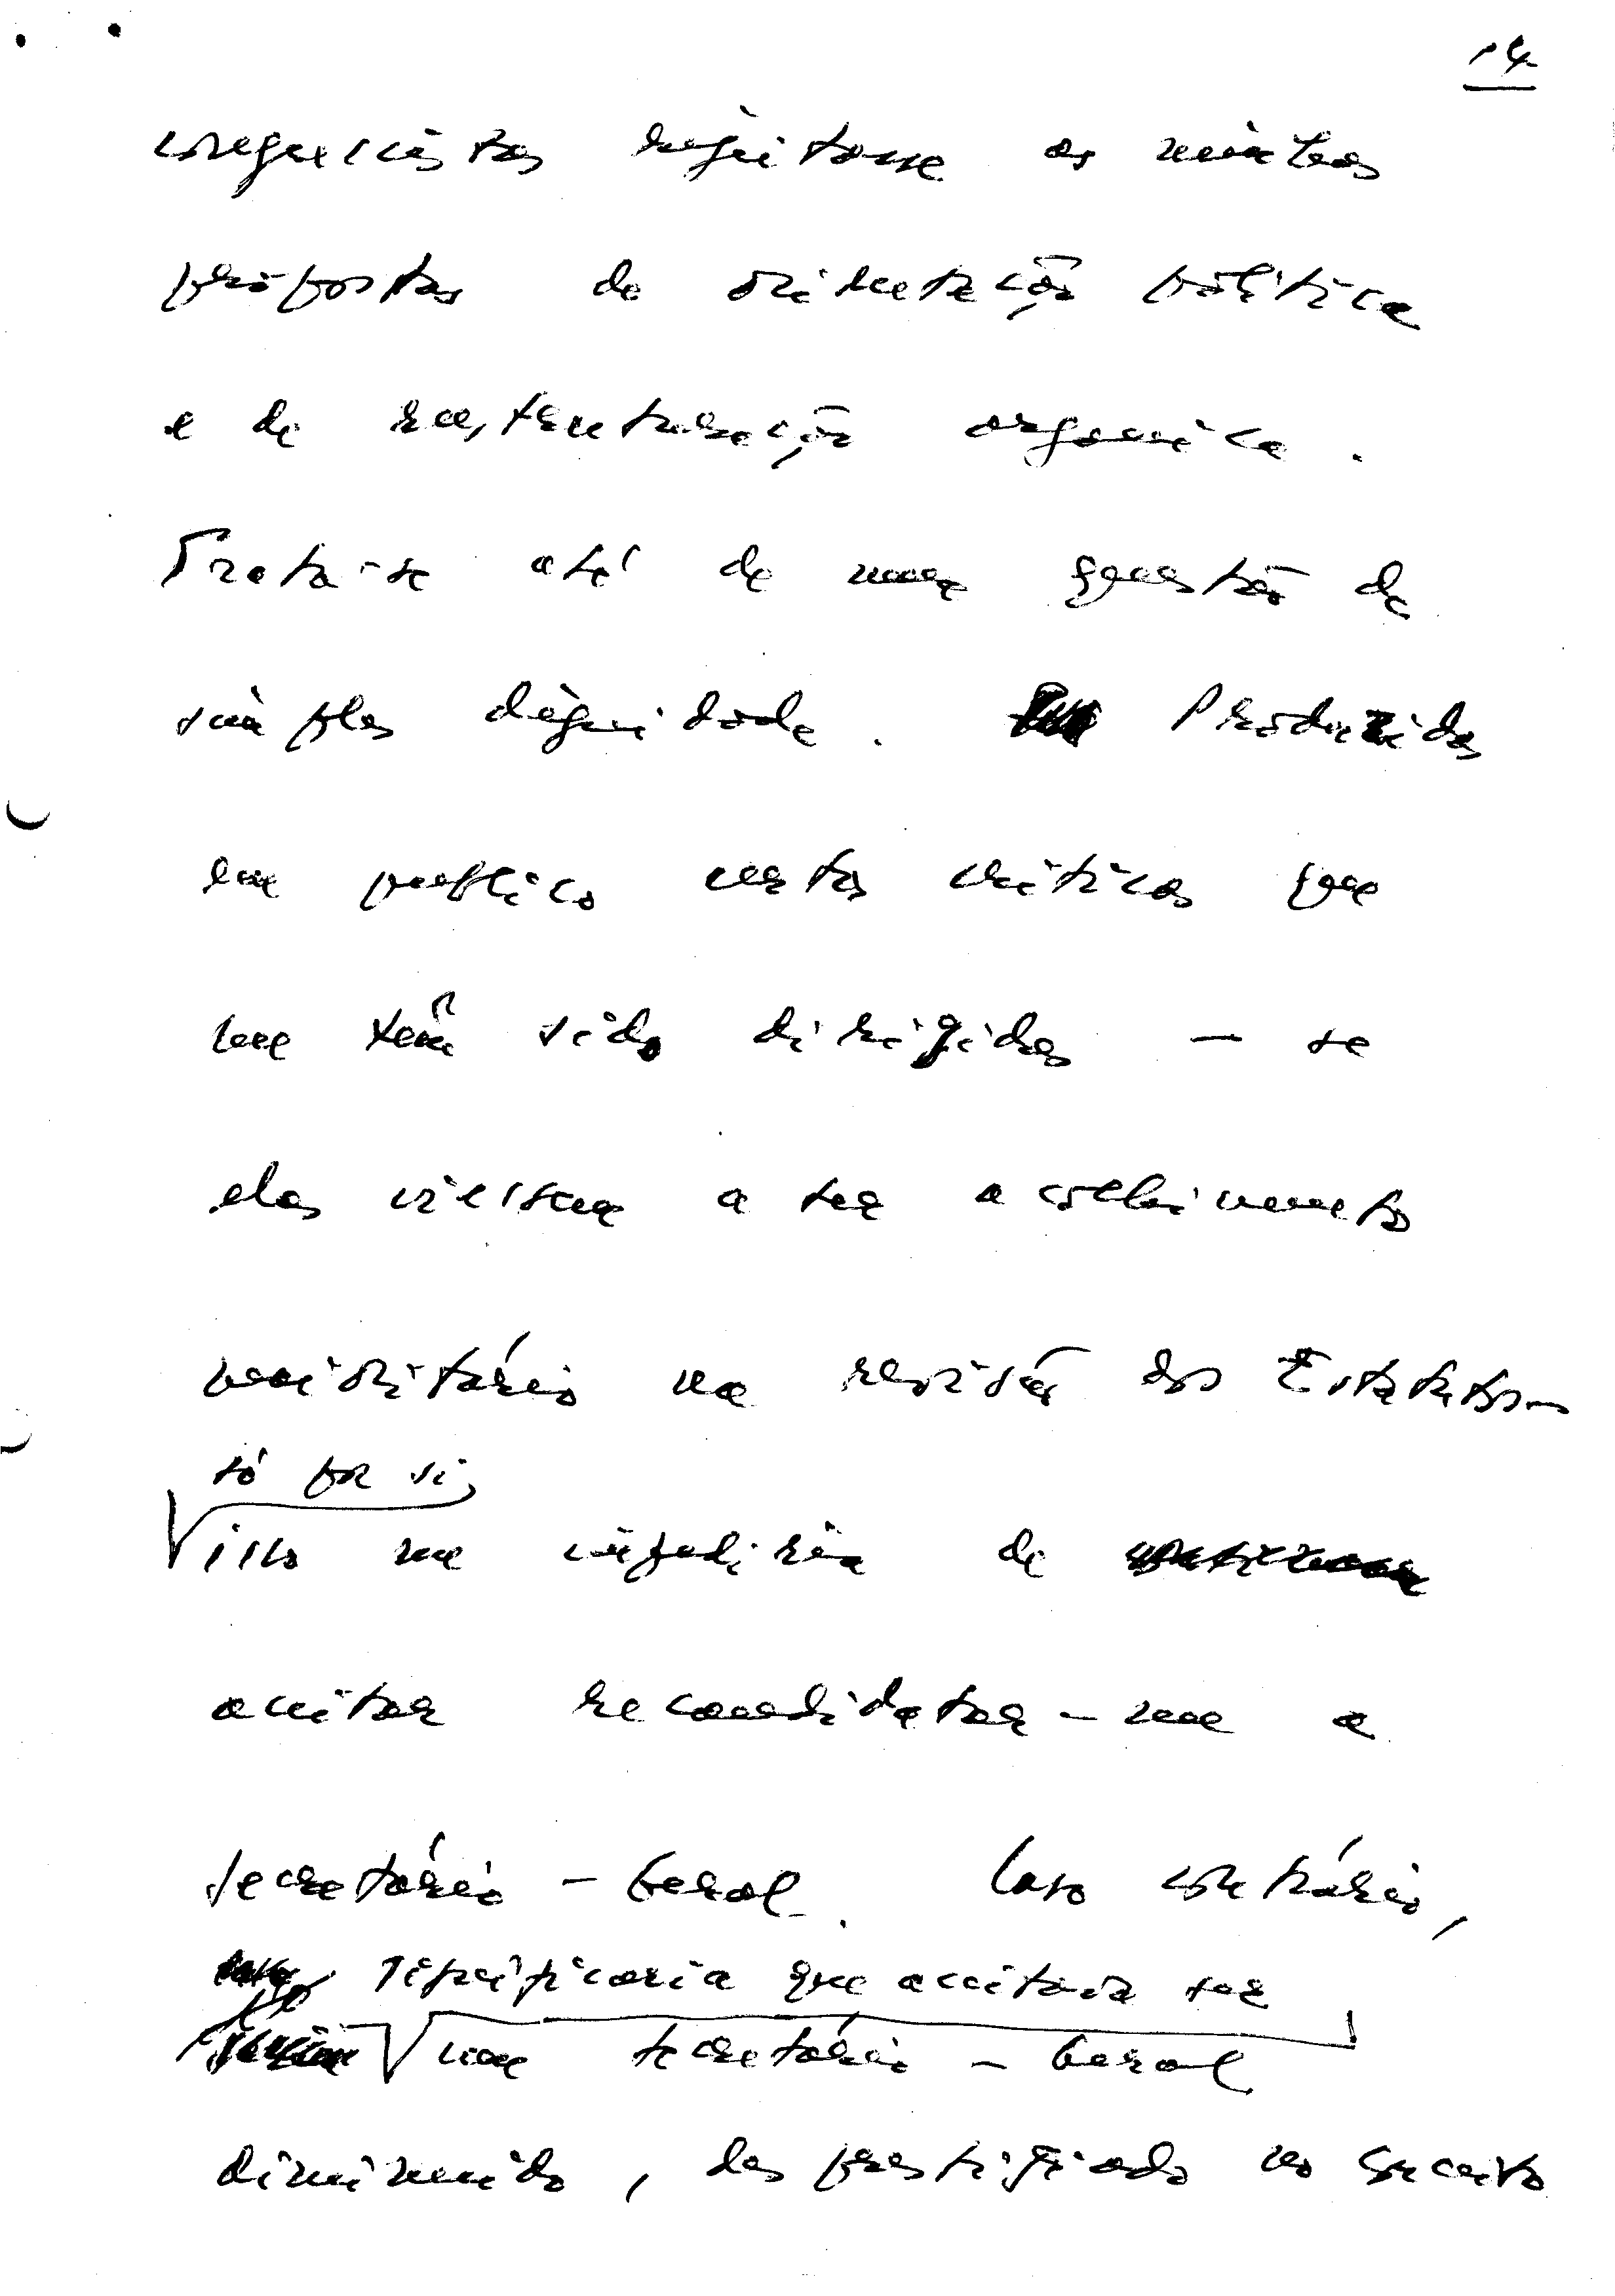 14
congressistas rejeitasse as minhas
propostas de orientação política
e de reestruturação orgânica.
Trata-se até de uma questão de
simples dignidade. Produzidas
em publico certas criticas que
me têm sido dirigidas – se
elas viessem a ter acolhimento
maioritário na revisão dos Estatutos –
só por si,
isso me impediria de
aceitar recandidatar-me a
Secretário-Geral. Caso contrário,
significaria que aceitava ser
um Secretário-Geral
diminuido, desprestigiado no conceito